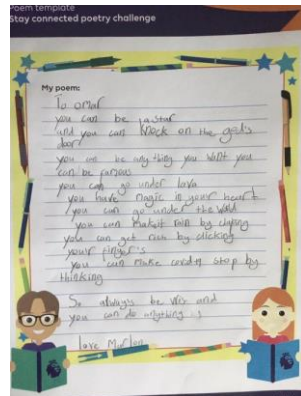 Poem template
Stay connected poetry challenge
My poem:
To omar
you can be a star
and you can knock on the god's
door
you can be any thing you want you
can be famous
you can go under lava
you have magic in your heart
you can go under the wald
you can make it rain by claping
you can get rich by clicking
your finger's
you can make corona stop by
thinking
So always be and
you can do anything
love